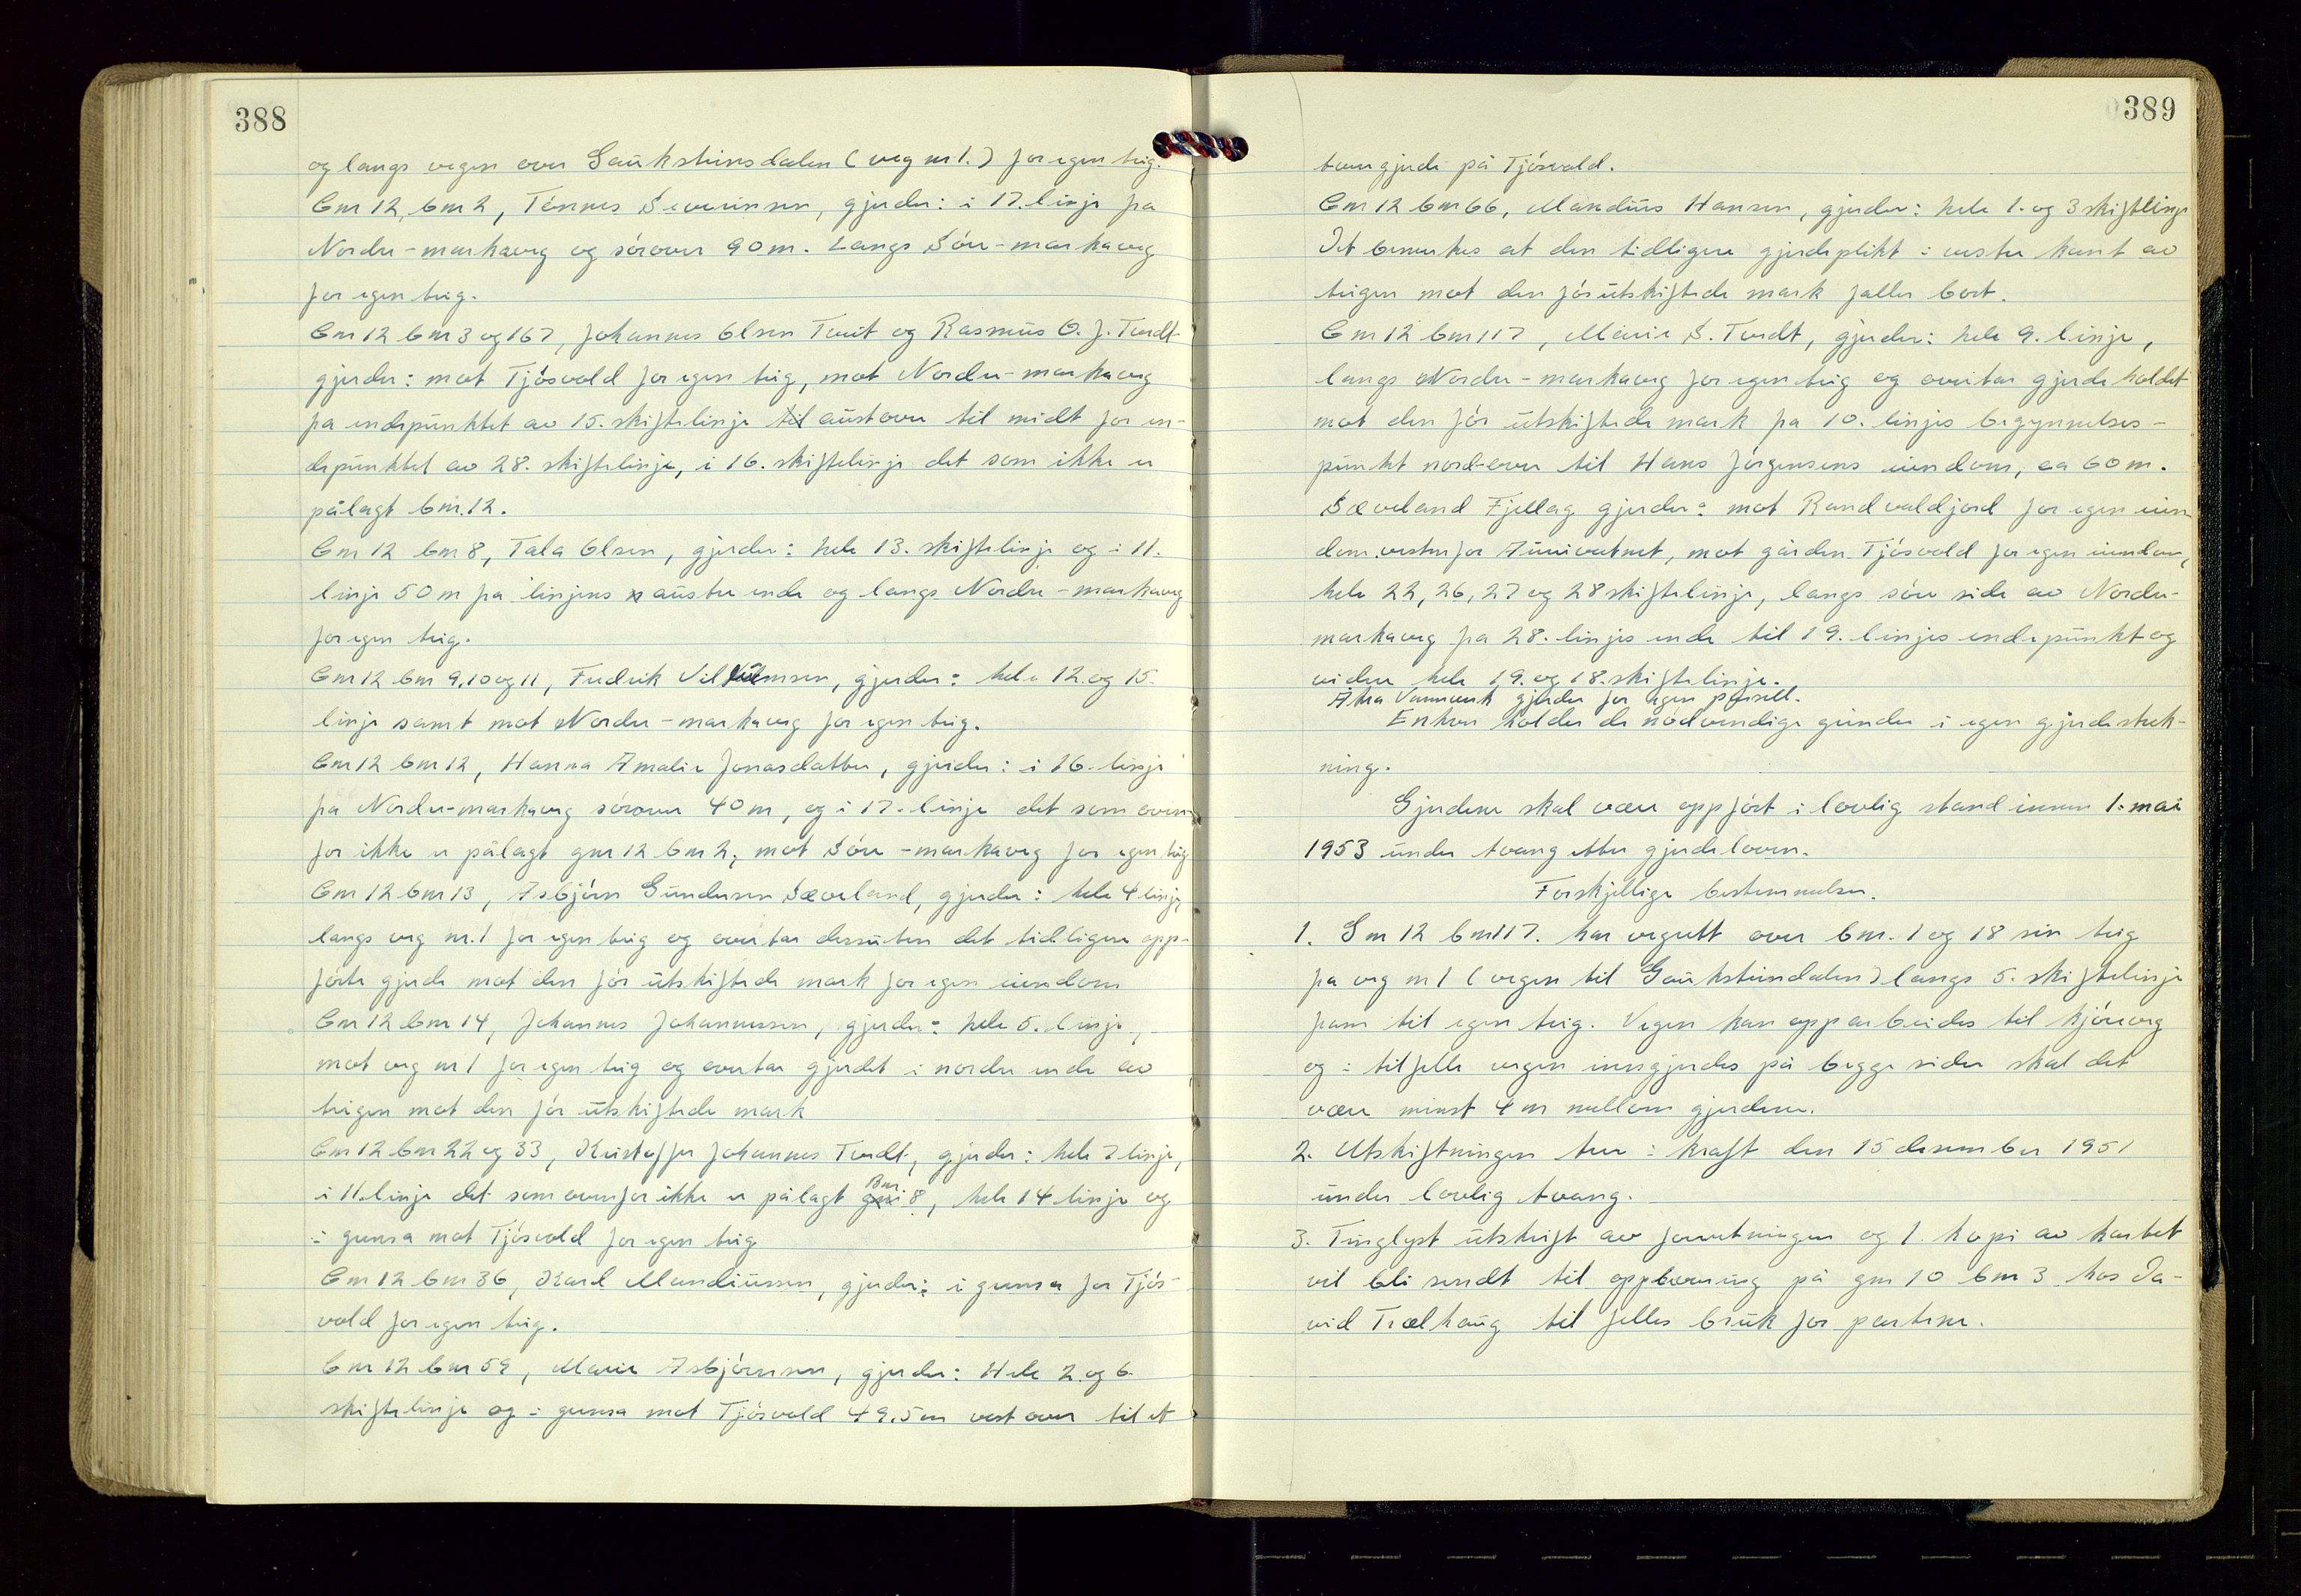 388
og langs vegen over Gauksteinsdalen (veg nr 1.) for egen teig.
Gnr 12, bnr 2, Tønnes Severinsen, gjerder: i 17. linje fra
Nordre-markaveg og sørover 90 m. Langs Søre-markaveg
for egen teig.
Gnr 12 bnr 3 og 167, Johannes Olsen Tveit og Rasmus O. J. Tvedt
gjerder: mot Tjøsvold for egen teig, mot Nordre-markaveg
fra endepunktet av 15. skiftelinje til austover til midt for en-
depunktet av 28. skiftelinje, i 16. skiftelinje det som ikke er
pålagt bnr. 12.
Gnr 12 bnr 8, Tala Olsen, gjerder: hele 13. skiftelinje og i 11.
linje 50 m fra linjens austre ende og langs Nordre-markaveg
for egen teig.
Gnr 12 bnr 9, 10 og 11, Fredrik Vilhelmsen, gjerder: hele 12. og 15.
linje samt mot Nordre-markaveg for egen teig.
Gnr 12 bnr 12, Hanna Amalie Jonasdatter, gjerder: i 16. linje
fra Nordre-markaveg sørover 40 m, og i 17. linje det som oven-
for ikke er pålagt gnr 12 bnr 2, mot Søre-markaveg for egen teig
Gnr 12 bnr 13, Asbjørn Gundersen Sæveland, gjerder: hele 4 linje,
langs veg nr. 1 for egen teig og overtar dessuten det tidligere opp-
førte gjerde mot den før utskiftede mark for egen eiendom
Gnr 12 bnr 14, Johannes Johannessen, gjerder: hele 5. linje,
mot veg nr 1 for egen teig og overtar gjerdet i nordre ende av
teigen mot den før utskiftede mark
Gnr 12 bnr 22 og 33, Kristoffer Johannes Tvedt, gjerder: hele 7 linje,
i 11. linje det som ovenfor ikke er pålagt gnr Bnr. 8, hele 14 linje og
i grensa mot Tjøsvold for egen teig
Gnr 12 bnr 36, Karl Mandiussen, gjerder: i grensa for Tjøs-
vold for egen teig.
Gnr 12 bnr 59, Marie Asbjørnsen, gjerder: Hele 2. og 6.
skiftelinje og i grensa mot Tjøsvold 49.5 m vestover til et
389
tverrgjerde på Tjøsvold.
Gnr 12 bnr 66, Mandius Hansen, gjerder: hele 1. og 3 skiftlinje
Det bemerkes at den tidligere gjerdeplikt i vestre kant av
teigen mot den før utskiftede mark faller bort.
Gnr 12 bnr 117, Marie S. Tvedt, gjerder: hele 9. linje,
langs Nordre-markaveg for egen teig og overtar gjerde holdet
mot den før utskiftede mark fra 10. linjes begynnelses-
punkt nord-over til Hans Jørgensens eiendom, ca 60 m.
Sæveland Fjellag gjerder: mot Randvaldjord for egen eien
dom vestenfor, mot gården Tjøsvold for egen eiendom,
hele 22, 26, 27 og 28 skiftelinje, langs søre side av Nordre-
markaveg fra 28. linjes ende til 19. linjes endepunkt og
videre hele 19. og 18. skiftelinje.
Åkra Vannverk gjerder for egen parsell.
Enhver holder de nødvendige grinder i egen gjerdestrek-
ning.
Gjerdene skal være oppført i lovlig stand innen 1. mai
1953 under tvang etter gjerdeloven.
Forskjellige bestemmelser.
1. Gnr 12 bnr 117. har vegrett over bnr. 1 og 18 sin teig
fra veg nr 1 (vegen til Gauksteindalen) langs 5. skiftelinje
fram til egen teig. Vegen kan opparbeides til kjøreveg
og i tilfelle vegen inngjerdes på begge sider skal det
være minst 4 m mellom gjerdene.
2. Utskiftningen trer i kraft den 15 desember 1951
under lovlig tvang.
3. Tinglyst utskrift av forretningen og 1. kopi av kartet
vil bli sendt til oppbevaring på gnr 10 bnr 3 hos Da-
vid Trælhaug til felles bruk for partene.